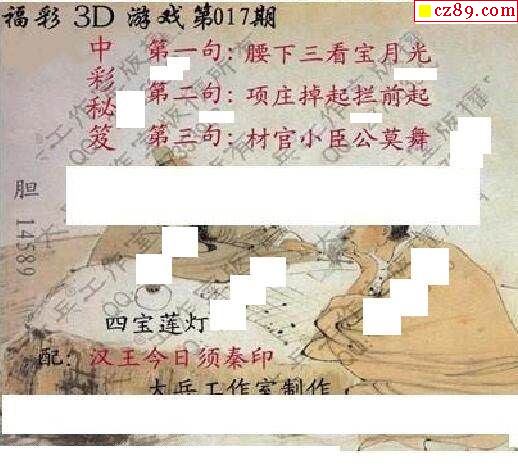 福彩 3D 游戏第017期
cz89.com
中彩秘笈
第一句：腰下三看宝月光
第二句：项庄掉起拦前起
第三句：材官小臣公莫舞
胆 14589
四宝莲灯
配：汉王今日须秦印
大兵工作室制作